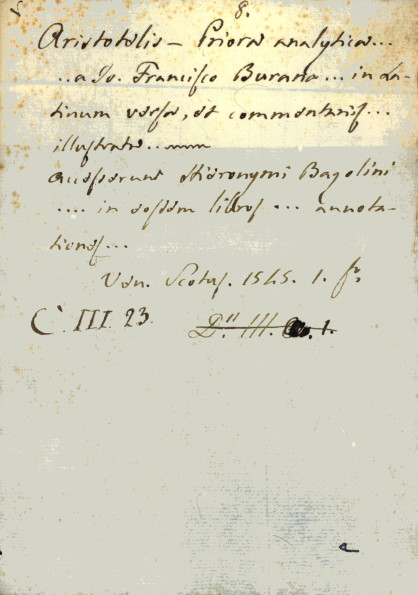 8.
Aristotelis – Priora analytica...
..a Jo. Francisco Burana... in La-
tinum versa, et commentariis...
illustrata..
accesserunt Hieronymi Bagolini
.... in eosdem libros ... annota-
tiones...
Ven. Scotus. 1545. 1. f°
C. III. 23. D. III. 1.